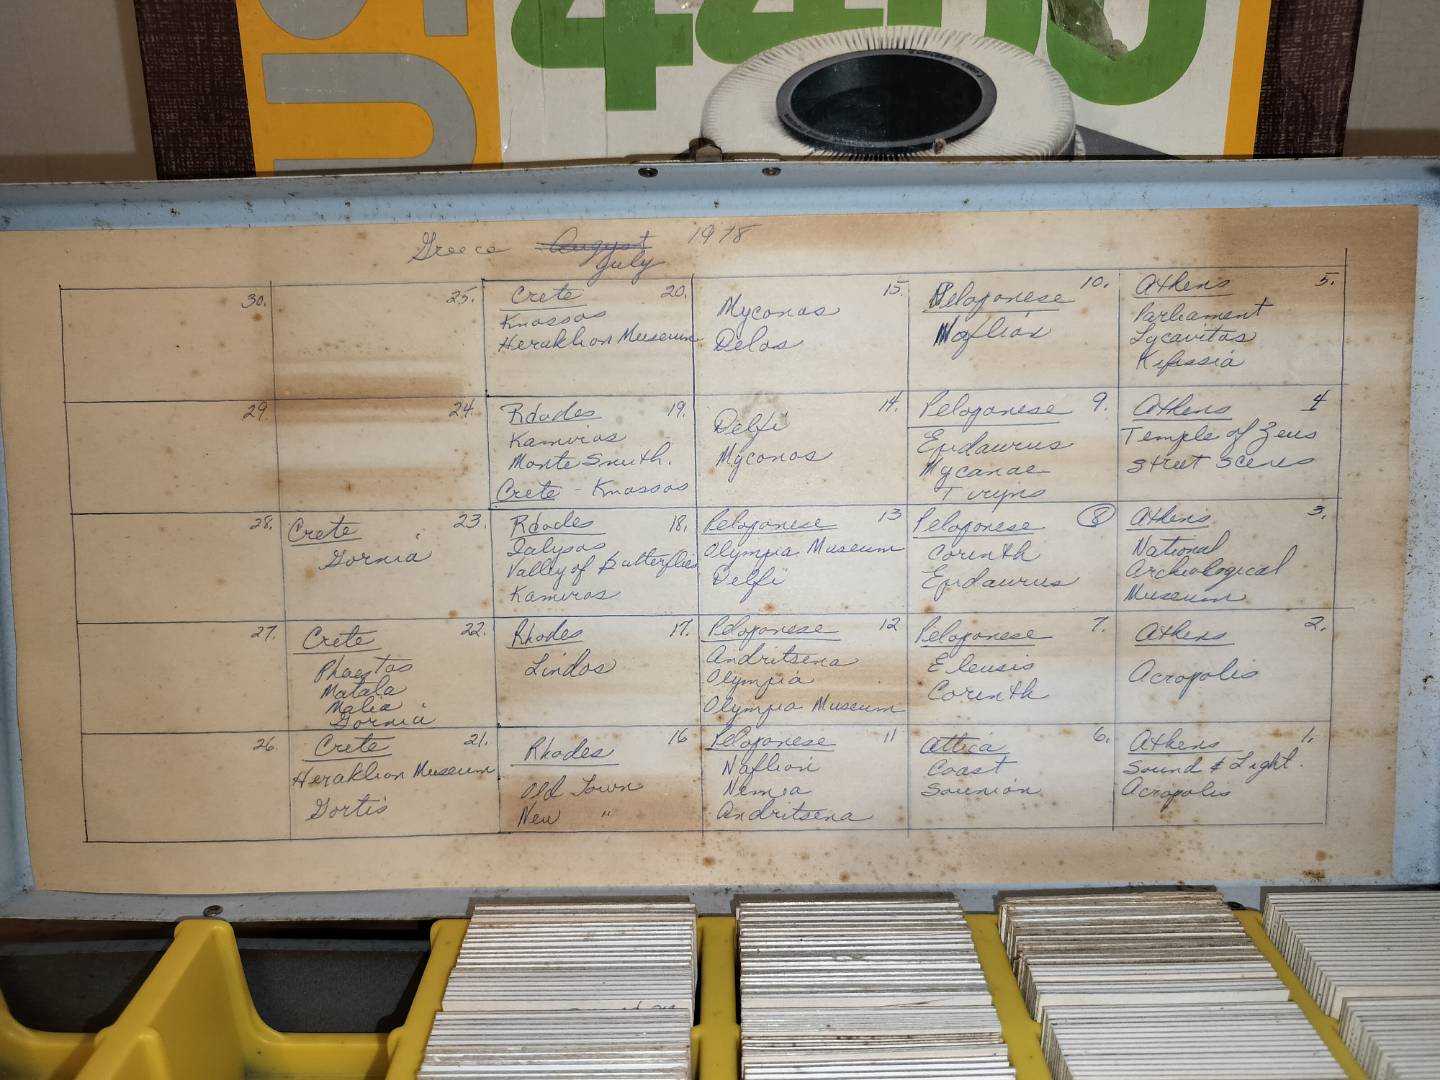 4400
Greece August 1978
July
30.
25.
Crete 20.
Knossos
Heraklion Museum
15.
Myconos
Delos
Peloponese 10.
Naflion
Athens 5.
Parliament
Lycavitos
Kifissia
29
24.
Rdodes 19.
Kamiros
Monte Smith.
Crete - Knossos
14.
Delfi
Myconos
Peloponese 9.
Epidaurus
Mycanae
Tiryns
Athens 4
Temple of Zeus
Street Scenes
28.
Crete 23.
Gornia
Rdodes 18.
Ialysos
Valley of Butterflies
Kamiros
Peloponese 13
Olympia Museum
Delfi
Peloponese 8
Corinth
Epidaurus
Athens 3.
National
Archeological
Museum
27.
Crete 22.
Phaestos
Matala
Malia
Gornia
Rhodes 17.
Lindos
Peloponese 12
Andritsena
Olympia
Olympia Museum
Peloponese 7.
Eleusis
Corinth
Athens 2.
Acropolis
26.
Crete 21.
Heraklion Museum
Gortis
Rhodes 16
Old Town
New "
Peloponese 11
Naflion
Nemea
Andritsena
Attica 6.
Coast
Sounion
Athens 1.
Sound & Light.
Acropolis